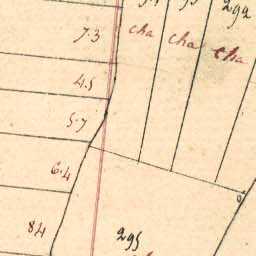 292
7.3
cha cha cha
4.5
5.7
6.4
84
295